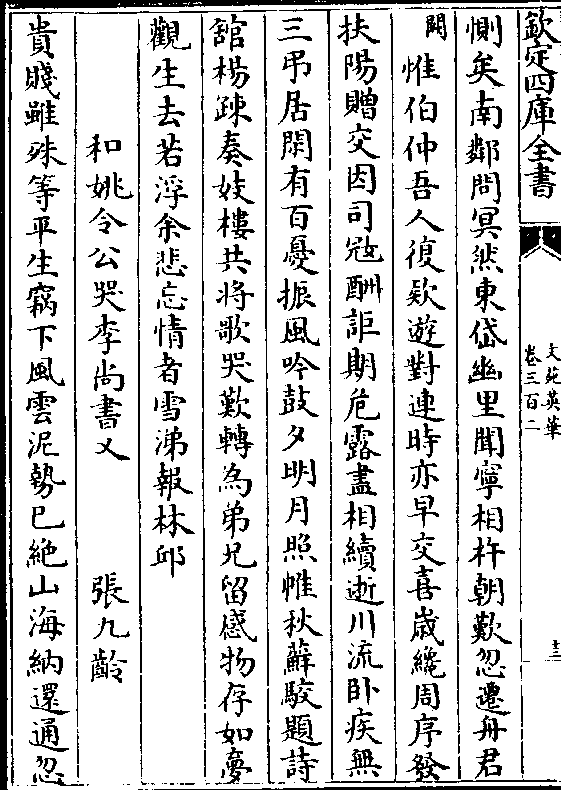 欽定四庫全書
文苑英華
卷三百二
十三
惻矣南鄰問冥然東岱幽里聞寧相杵朝歎忽遷舟君
闕惟伯仲吾人復款遊對連時亦早交喜歲纔周序發
扶陽贈交因司寇酬詎期危露盡相續逝川流卧疾無
三弔居閑有百憂振風吟鼓夕明月照帷秋蘚駮題詩
舘楊疎奏妓樓共將歌哭歎轉為弟兄留感物存如夢
觀生去若浮余悲忘情者雪涕報林邱
和姚令公哭李尚書乂 張九齡
貴賤雖殊等平生竊下風雲泥勢已絶山海納還通忽